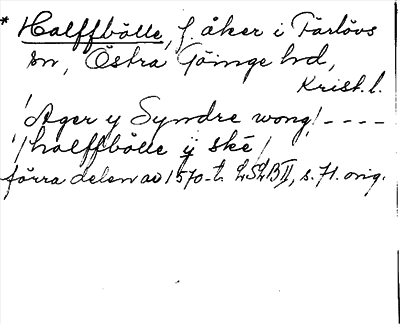 * Halffbölle, f. åker i Färlövs
sn, Östra Göinge hd,
Krist. l.
"Ager y Syndre wong! - - - -
halffbölle y ské /
förra delen av 1570-t. LSLB II, s. 71. orig.